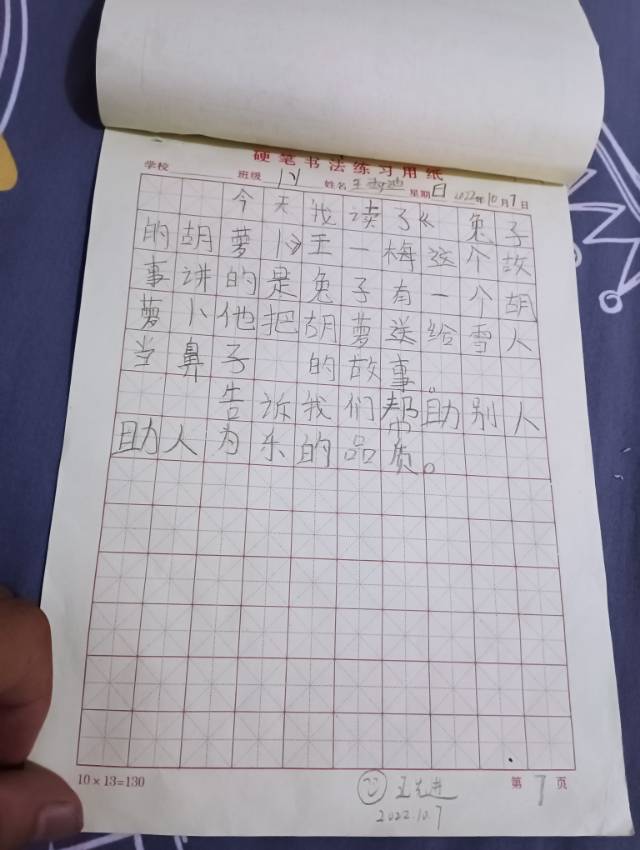 硬笔书法练习用纸
学校 班级 姓名 王 星期日 2022年10月7日
今天我读了《兔子
的胡萝卜》王一梅这个故
事讲的是兔子有一个胡
萝卜他把胡萝送给雪人
当鼻子 的故事。
告诉我们帮助别人
助人为乐的品质。
10×13=130
第7页
王先进
2022.10.7